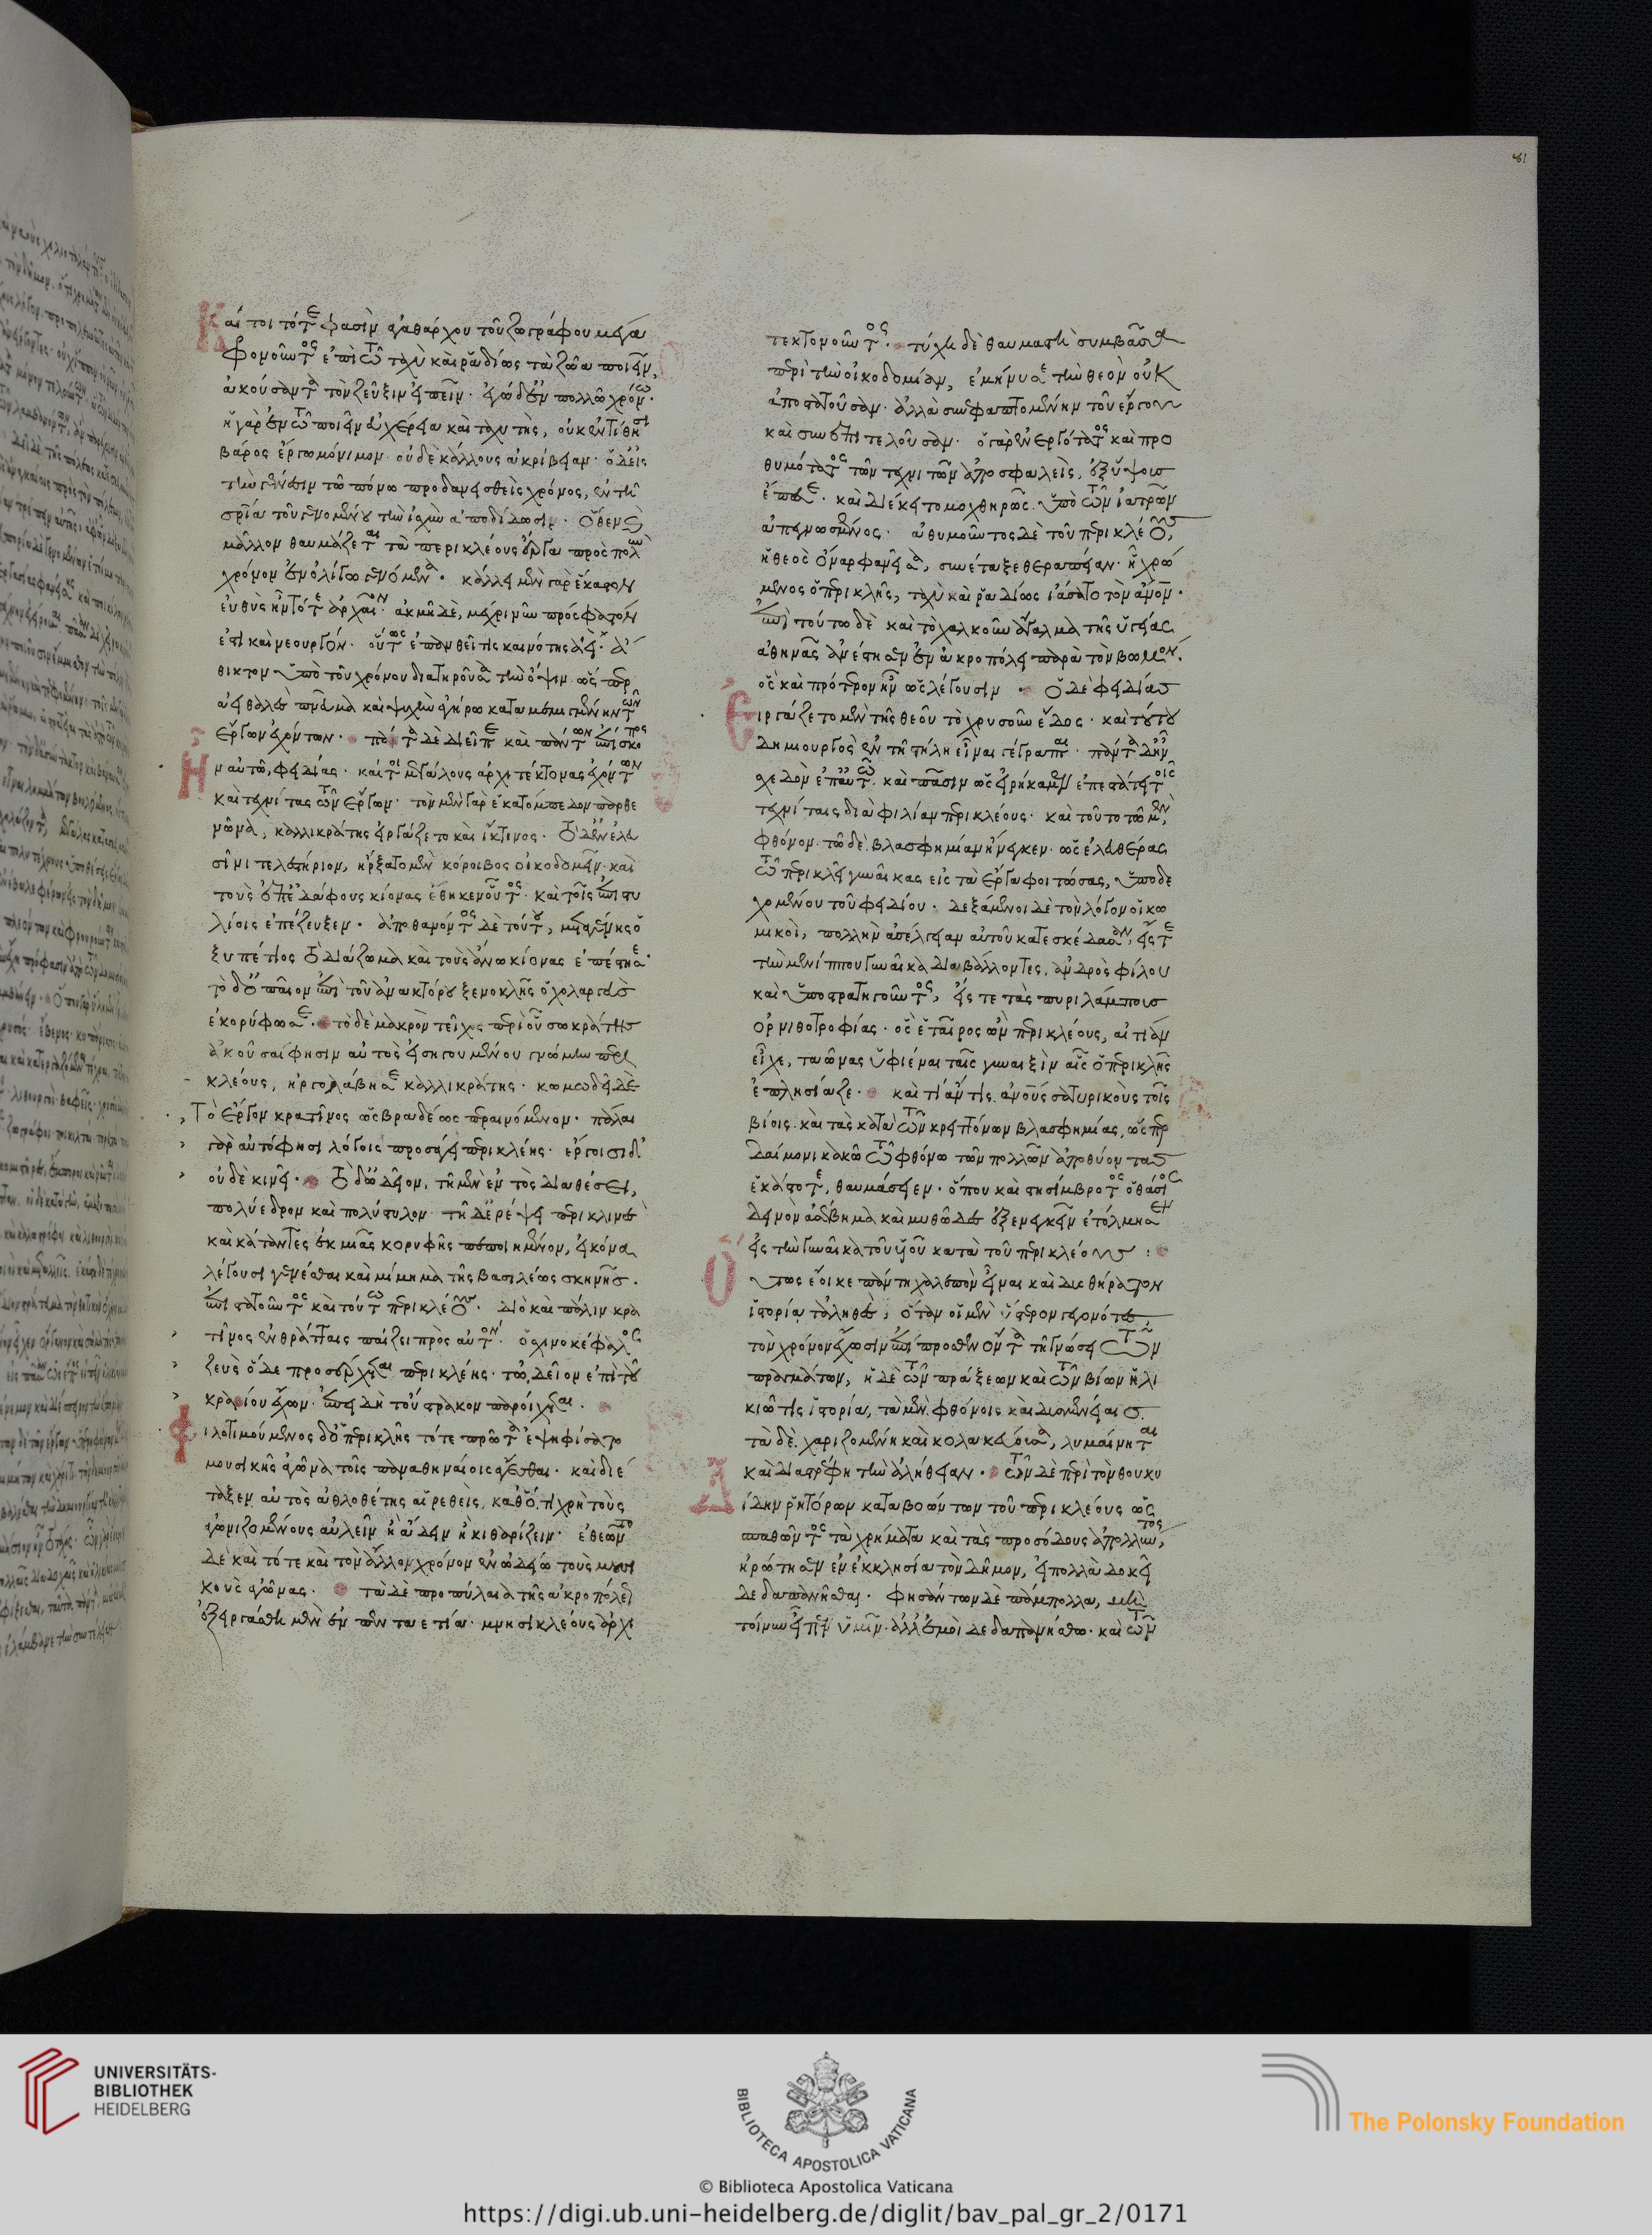 Καί τοι τότε φασὶν ἀγαθάρχου τοῦ ζωγράφου μέγα
φρονοῦντος ἐπὶ τῶ ταχὺ καὶ ῥαδίως τὰ ζῶα ποιεῖν,
ἀκούσαντα τὸν ζεῦξιν εἰπεῖν· ἐγὼ δ' ἐν πολλῶ χρόνω·
ἡ γὰρ ἐν τῶ ποιεῖν εὐχέρεια καὶ ταχυτὴς, οὐκ ἐντίθησι
βάρος ἔργω μόνιμον· οὐδὲ κάλλους ἀκρίβειαν· ὁ δ' εἰς
τὴν γένεσιν τῶ πόνω προδανεισθεὶς χρόνος, ἐν τῆ
σωτηρία τοῦ γενομένου τὴν ἰσχὺν ἀποδίδωσιν· ὅθεν καὶ
μᾶλλον θαυμάζεται τὰ περικλέους ἔργα πρὸς πολὺν
χρόνον ἐν ὀλίγω γενόμενα· κάλλει μὲν γὰρ ἕκαστον
εὐθὺς ἦν τότε ἀρχαῖον· ἀκμῆ δὲ, μέχρι νῦν πρόσφατον
ἐστὶ καὶ νεουργόν· οὕτως ἐπανθεῖ τις καινότης ἀεὶ ἄ
θικτον ὑπὸ τοῦ χρόνου διατηροῦσα τὴν ὄψιν ὥσπερ
ἀειθαλὲς πνεῦμα καὶ ψυχὴν ἀγήρω καταμεμιγμένην τῶν
ἔργων ἐχόντων· πάντα δὲ διεῖπε καὶ πάντων ἐπίσκοπος
Ἦν αὐτῶ, φειδίας· καί τοι μεγάλους ἀρχιτέκτονας ἐχόντων
καὶ τεχνίτας τῶν ἔργων· τὸν μὲν γὰρ ἑκατόμπεδον παρθε
νῶνα, καλλικράτης εἰργάζετο καὶ ἴκτινος· τὸ δ' ἐν ἐλευ
σῖνι τελεστήριον, ἤρξατο μὲν κόροιβος οἰκοδομεῖν· καὶ
τοὺς ἐπ' ἐδάφους κίονας ἔθηκεν οὗτος· καὶ τοῖς ἐπιστυ
λίοις ἐπέζευξεν· ἀποθανόντος δὲ τούτου, μεταγένης ὁ
ξυπέτιος τὸ διάζωμα καὶ τοὺς ἄνω κίονας ἐπέστησε·
τὸ δ' ὀπαῖον ἐπὶ τοῦ ἀνακτόρου ξενοκλῆς ὁ χολαργεὺς
ἐκορύφωσε· τὸ δὲ μακρὸν τεῖχος περὶ οὗ σωκράτης
ἀκοῦσαί φησιν αὐτὸς εἰσηγουμένου γνώμην περι
κλέους, ἠργολάβησε καλλικράτης· κωμωδεῖ δὲ
Τὸ ἔργον κρατῖνος ὡς βραδέως περαινόμενον· πάλαι
γὰρ αὐτό φησι λόγοις προσάγει περικλέης· ἔργοισι δ'
οὐδὲ κινεῖ· τὸ δ' ὠδεῖον, τῆ μὲν ἐντὸς διαθέσει,
πολύεδρον καὶ πολύστυλον· τῆ δ' ἐρέψει περικλινὲς
καὶ κάταντες ἐκ μιᾶς κορυφῆς πεποιημένον, εἰκόνα
λέγουσι γενέσθαι καὶ μίμημα τῆς βασιλέως σκηνῆς·
ἐπιστατοῦντος καὶ τούτω περικλέους· διὸ καὶ πάλιν κρα
τῖνος ἐν θράτταις παίζει πρὸς αὐτόν· ὁ σχινοκέφαλος
ζεὺς ὅδε προσέρχεται περικλέης· τὠδεῖον ἐπὶ τοῦ
κρανίου ἔχων· ἐπειδὴ τοὔστρακον παροίχεται·
Φιλοτιμούμενος δ' ὁ περικλῆς τότε πρῶτα ἐψηφίσατο
μουσικῆς ἀγῶνα τοῖς παναθηναίοις ἄγεσθαι· καὶ διέ
ταξεν αὐτὸς ἀθλοθέτης αἱρεθεὶς, καθό, τι χρὴ τοὺς
ἀγωνιζομένους αὐλεῖν ἢ ἄδειν ἢ κιθαρίζειν· ἐθεῶντο
δὲ καὶ τότε καὶ τὸν ἄλλον χρόνον ἐν ὠδείω τοὺς μουσι
κοὺς ἀγῶνας· τὰ δὲ προπύλαια τῆς ἀκροπόλεως
ἐξειργάσθη μὲν ἐν πενταετία· μνησικλέους ἀρχι
τεκτονοῦντος· τύχη δὲ θαυμαστὴ συμβᾶσα
περὶ τὴν οἰκοδομίαν, ἐμήνυσε τὴν θεὸν οὐκ
ἀποστατοῦσαν· ἀλλὰ συνεφαπτομένην τοῦ ἔργου
καὶ συνεπιτελοῦσαν· ὁ γὰρ ἐνεργότατος καὶ προ
θυμότατος τῶν τεχνιτῶν ἀποσφαλεὶς, ἐξ ὕψους
ἔπεσε· καὶ διέκειτο μοχθηρῶς. ὑπὸ τῶν ἰατρῶν
ἀπεγνωσμένος· ἀθυμοῦντος δὲ τοῦ περικλέους,
ἡ θεὸς ὄναρ φανεῖσα, συνέταξε θεραπείαν· ἧ χρώ
μενος ὁ περικλῆς, ταχὺ καὶ ῥαδίως ἰάσατο τὸν ἄνθρωπον·
ἐπὶ τούτω δὲ καὶ τὸ χαλκοῦν ἄγαλμα τῆς ὑγείας
ἀθηνᾶς ἀνέστησεν ἐν ἀκροπόλει παρὰ τὸν βωμὸν.
ὃς καὶ πρότερον ἦν ὡς λέγουσιν· ὁ δὲ φειδίας
Εἰργάζετο μὲν τῆς θεοῦ τὸ χρυσοῦν ἕδος· καὶ τούτου
δημιουργὸς ἐν τῆ στήλη εἶναι γέγραπται· πάντα δ' ἦν
σχεδὸν ἐπ' αὐτῶ· καὶ πᾶσιν ὡς εἰρήκαμεν ἐπεστάτει τοῖς
τεχνίταις διὰ φιλίαν περικλέους· καὶ τοῦτο τῶ μὲν,
φθόνον· τῶ δὲ βλασφημίαν ἤνεγκεν· ὡς ἐλευθέρας
τῶ περικλεῖ γυναῖκας εἰς τὰ ἔργα φοιτώσας, ὑποδε
χομένου τοῦ φειδίου· δεξάμενοι δὲ τὸν λόγον οἱ κω
μικοὶ, πολλὴν ἀσέλγειαν αὐτοῦ κατεσκέδασαν, εἴς τε
τὴν μενίππου γυναῖκα διαβάλλοντες, ἀνδρὸς φίλου
καὶ ὑποστρατηγοῦντος, εἴς τε τὰς πυριλάμπους
ὀρνιθοτροφίας· ὃς ἑταῖρος ὢν περικλέους, αἰτίαν
εἶχε, ταῶνας ὑφιέναι ταῖς γυναιξὶν αἷς ὁ περικλῆς
ἐπλησίαζε· καὶ τί ἄν τις ἀνθρώπους σατυρικοὺς τοῖς
βίοις καὶ τὰς κατὰ τῶν κρειττόνων βλασφημίας, ὥσπερ
δαίμονι κακῶ τῶ φθόνω τῶν πολλῶν ἀποθύοντας
ἑκάστοτε, θαυμάσειεν· ὅπου καὶ στησίμβροτος ὁ θάσιος
δεινὸν ἀσέβημα καὶ μυθῶδες ἐξενεγκεῖν ἐτόλμησεν
εἰς τὴν γυναῖκα τοῦ υἱοῦ κατὰ τοῦ περικλέους :
Οὕτως ἔοικε πάντη χαλεπὸν εἶναι καὶ δυσθήρατον
ἱστορία τἀληθὲς, ὅταν οἱ μὲν ὕστερον γεγονότες,
τὸν χρόνον ἔχωσιν ἐπίπροσθεν ὄντα τῆ γνώσει τῶν
πραγμάτων, ἡ δὲ τῶν πράξεων καὶ τῶν βίων ἡλι
κιῶτις ἱστορία, τὰ μὲν φθόνοις καὶ δυσμενείαις.
τὰ δὲ χαριζομένη καὶ κολακεύουσα, λυμαίνηται
καὶ διαστρέφη τὴν ἀλήθειαν· τῶν δὲ περὶ τὸν θουκυ
Δίδην ῥητόρων καταβοώντων τοῦ περικλέους ὡς
σπαθῶντος τὰ χρήματα καὶ τὰς προσόδους ἀπολλύντος,
ἠρώτησεν ἐν ἐκκλησία τὸν δῆμον, εἰ πολλὰ δοκεῖ
δεδαπανῆσθαι· φησάντων δὲ πάμπολλα, μὴ
τοίνυν εἶπεν ὑμῖν· ἀλλ' ἐμοὶ δεδαπανήσθω· καὶ τῶν
UNIVERSITÄTS-
BIBLIOTHEK
HEIDELBERG
BIBLIOTECA APOSTOLICA VATICANA
The Polonsky Foundation
© Biblioteca Apostolica Vaticana
https://digi.ub.uni-heidelberg.de/diglit/bav_pal_gr_2/0171